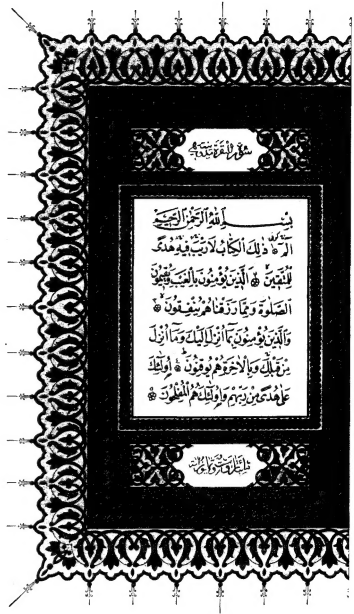 سورة البقرة مدنية
بِسْمِ اللّٰهِ الرَّحْمٰنِ الرَّحِيمِ
الٓمٓ ۞ ذٰلِكَ الْكِتَابُ لَا رَيْبَ فِيهِ هُدًى
لِلْمُتَّقِينَ ۞ الَّذِينَ يُؤْمِنُونَ بِالْغَيْبِ وَيُقِيمُونَ
الصَّلٰوةَ وَمِمَّا رَزَقْنَاهُمْ يُنْفِقُونَ ۞
وَالَّذِينَ يُؤْمِنُونَ بِمَا اُنْزِلَ اِلَيْكَ وَمَا اُنْزِلَ
مِنْ قَبْلِكَ وَبِالْاٰخِرَةِ هُمْ يُوقِنُونَ ۞ اُولٰئِكَ
عَلٰى هُدًى مِنْ رَبِّهِمْ وَاُولٰئِكَ هُمُ الْمُفْلِحُونَ ۞